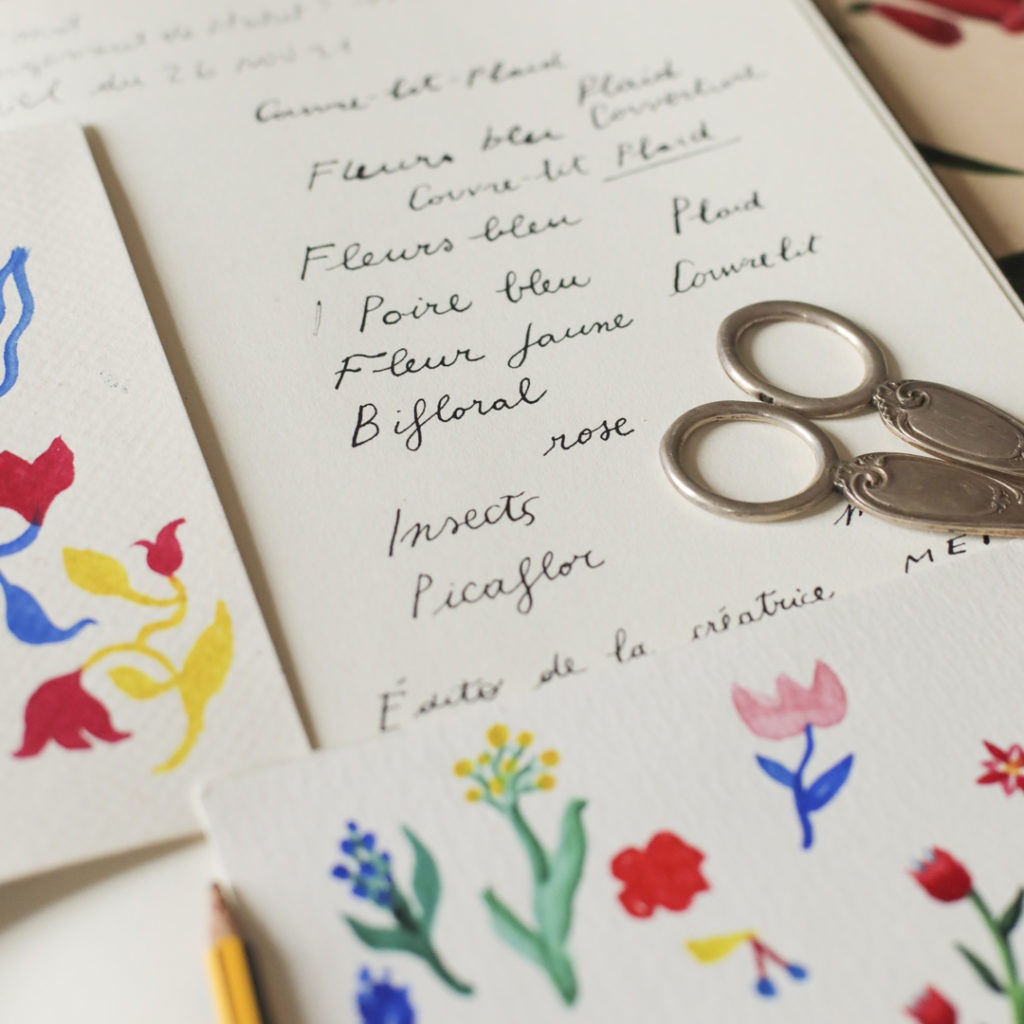 du 26 nov 21
Couvre-lit-Plaid
Plaid
Fleurs bleu Couverture
Couvre-lit Plaid
Fleurs bleu Plaid
Poire bleu Couvrelit
Fleur jaune
Bifloral
rose
Insects
Picaflor
Édito de la créatrice
MÉT